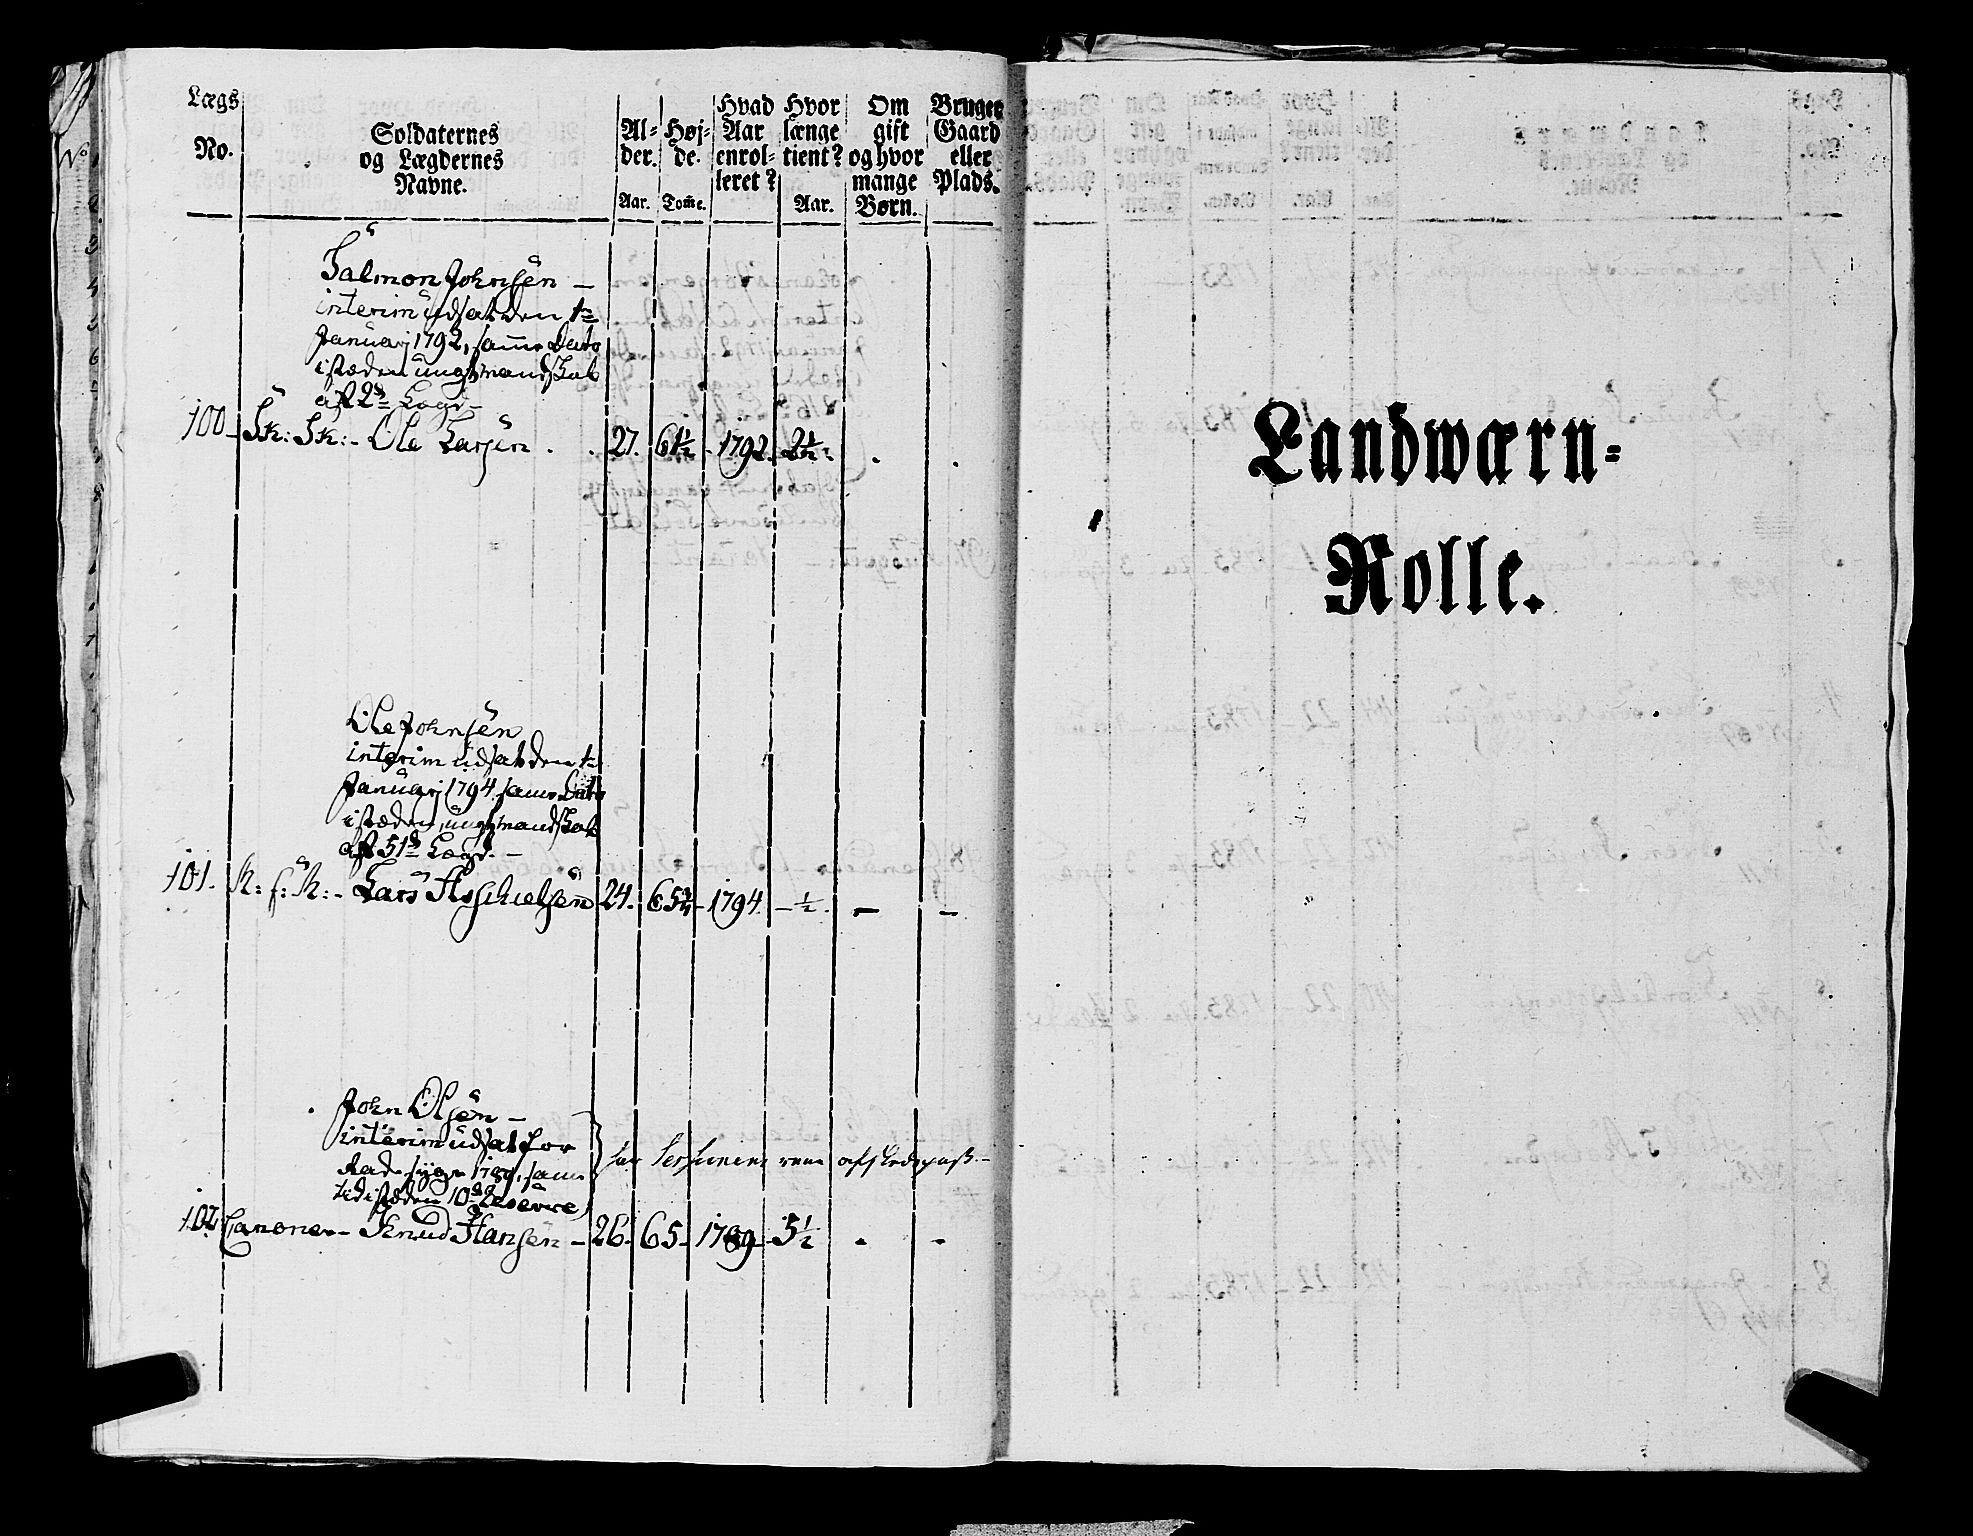 Lægs No.
Soldaternes og Lægdernes Navne.
Al- der. Aar.
Høj- de. Tom̄e.
Hvad Aar enrol- leret?
Hvor længe tient? Aar.
Om gift og hvor mange Børn.
Bruger Gaard eller Plads.
Salmon Johnsen –
interim udsat den 1te
Januarj 1792, samme Dato
istæden ungt mandskab
aft 2d Lægd –
100 – Sk: Sk: – Ole Larsen . . 27. 61½ – 1792. 2½ . .
Ole Johnsen
interim udsat den 1te
Januarj 1794 samme Dato
istæden, ungt mandskab
aft 51d Lægd. –
101. R: f: R: – Lars Aschielsen 24. 65¾ – 1794. – ½. – –
John Olsen –
interim udsat for
Rade syge 1789, samme
tid istæden 10d Reserve,
afskeds pass –
102 Canoner – Knud Hansen – 26. 65 – 1789 – 5½ . .
Landwærn-
Rolle.